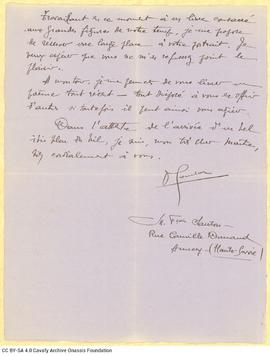 Travaillant en ce moment à un livre consacré
aux grandes figures de notre temps, je me propose
de réserver une large place à votre portrait. Je
veux espérer que vous ne m'en refuserez point le
plaisir.
A mon tour, je me permets de vous
poème tout récent — tout disposé à vous en offrir
d'autres si toutefois il peut ainsi vous agréer.
Dans l'attente de l'arrivée d'un bel
bleu du Nil, je suis, mon très cher maître,
très cordialement à vous.
Rue Camille Dunand
Annecy - (Haute-Savoie)
CC BY-SA 4.0 Cavafy Archive Onassis Foundation